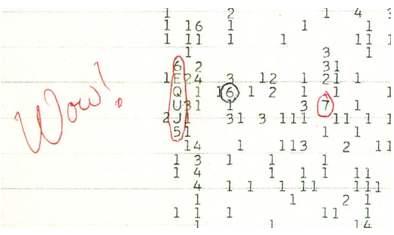 1 2 1 4 3
1 16 1 1 1
1 11 1 1 11 1
1 1
6 2 31
1 E24 3 12 1 21 1
Q 1 16 1 2 1 1 1
U31 1 3 7 1
2 J 31 3 111 11 1 1
51 1
14 1 113 2 11
1 3 1 1 1
1 4 1 1
4 1 1 1 11 111
1 2 1
1 1 1 11 1
1 1 14
Wow!